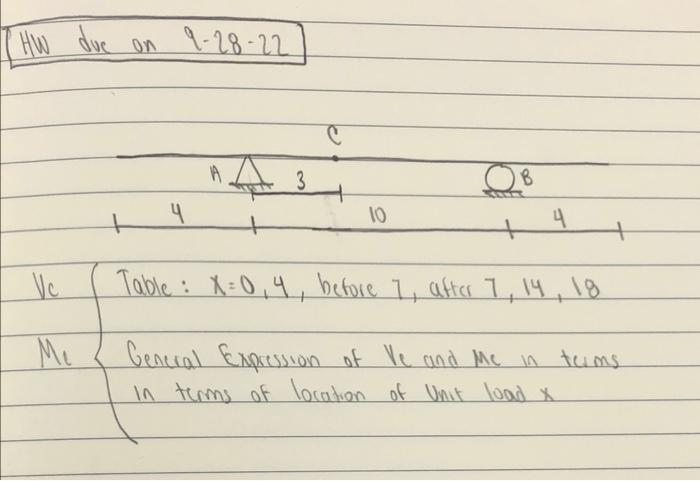 HW due on 9-28-22
C
A 3 B
4 10 4
Vc Table: x=0, 4, before 7, after 7, 14, 18
Mc General Expression of Vc and Mc in terms
in terms of location of Unit load x